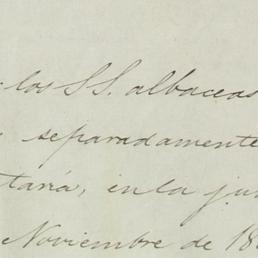 los S.S. albaceas
separadamente
taria, en la ju
Noviembre de 18